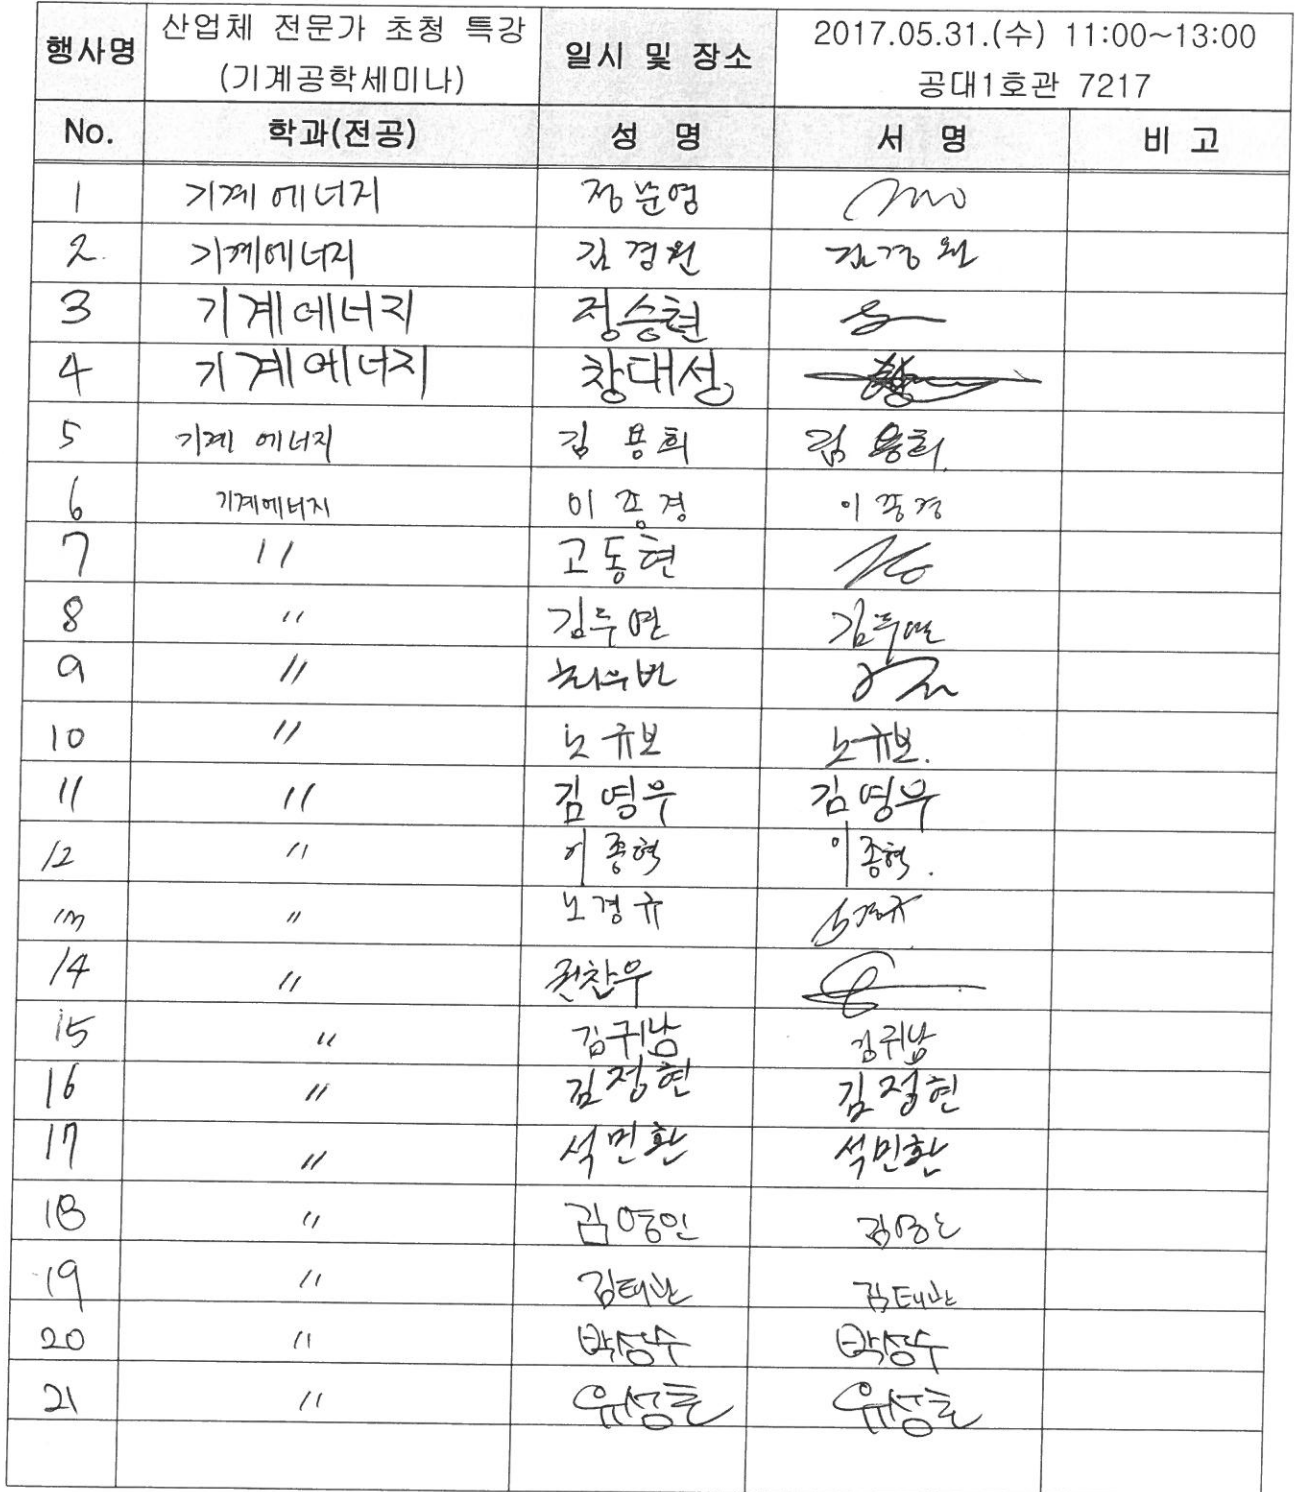 행사명 산업체 전문가 초청 특강 (기계공학세미나) 일시 및 장소 2017.05.31.(수) 11:00~13:00 공대1호관 7217
No. 학과(전공) 성 명 서 명 비 고
1 기계에너지 정순영
2. 기계에너지 김경원 김경원
3 기계에너지 정승현
4 기계에너지 창대성
5 기계 에너지 김용희 김용희
6 기계에너지 이종경 이종경
7 〃 고동현
8 〃 김두연 김두연
9 〃
10 〃 노규보 노규보.
11 〃 김영우 김영우
12 〃 이종혁 이종혁.
13 〃 노경규 노경규
14 〃 권찬우
15 〃 김귀남 김귀남
16 〃 김정현 김정현
17 〃 석민환 석민환
18 〃 김영인
19 〃 김태환 김태환
20 〃 박성수 박성수
21 〃 유성훈 유성훈